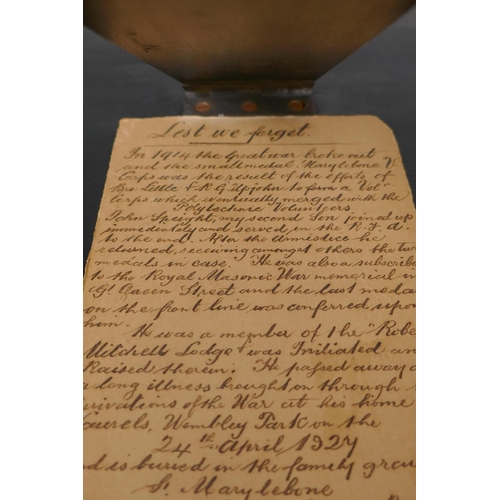 Lest we forget.
In 1914 the Great war broke out
and the small medal. Marylebone V.
Corps was the result of the efforts of
Bro. Little & R. G. Upjohn to form a Vol
Corps which eventually merged with the
Polytechnic Volunteers.
John Speight, my second Son joined up
immediately and served in the R.F.A.
to the end. After the Armistice he
returned, receiving amongst others the two
medals in case. He was also a subscribe
to the Royal Masonic War memorial in
Gt. Queen Street and the last meda
on the front line was conferred upon
him.
He was a member of the "Robe
Mitchell Lodge" was Initiated an
Raised therein. He passed away a
a long illness bought on through
privations of the War at his home
aurels, Wembley Park on the
24th April 1927
nd is buried in the family grou
St. Marylebone